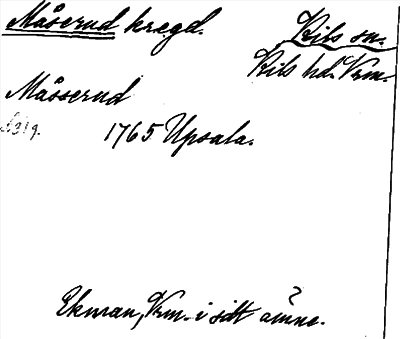 Måserud kregd. Kils sn.
Kils hd. Vrm.
Måsserud
s. 319.
1765 Upsala.
Ekman, Vrm. i sitt ämne.